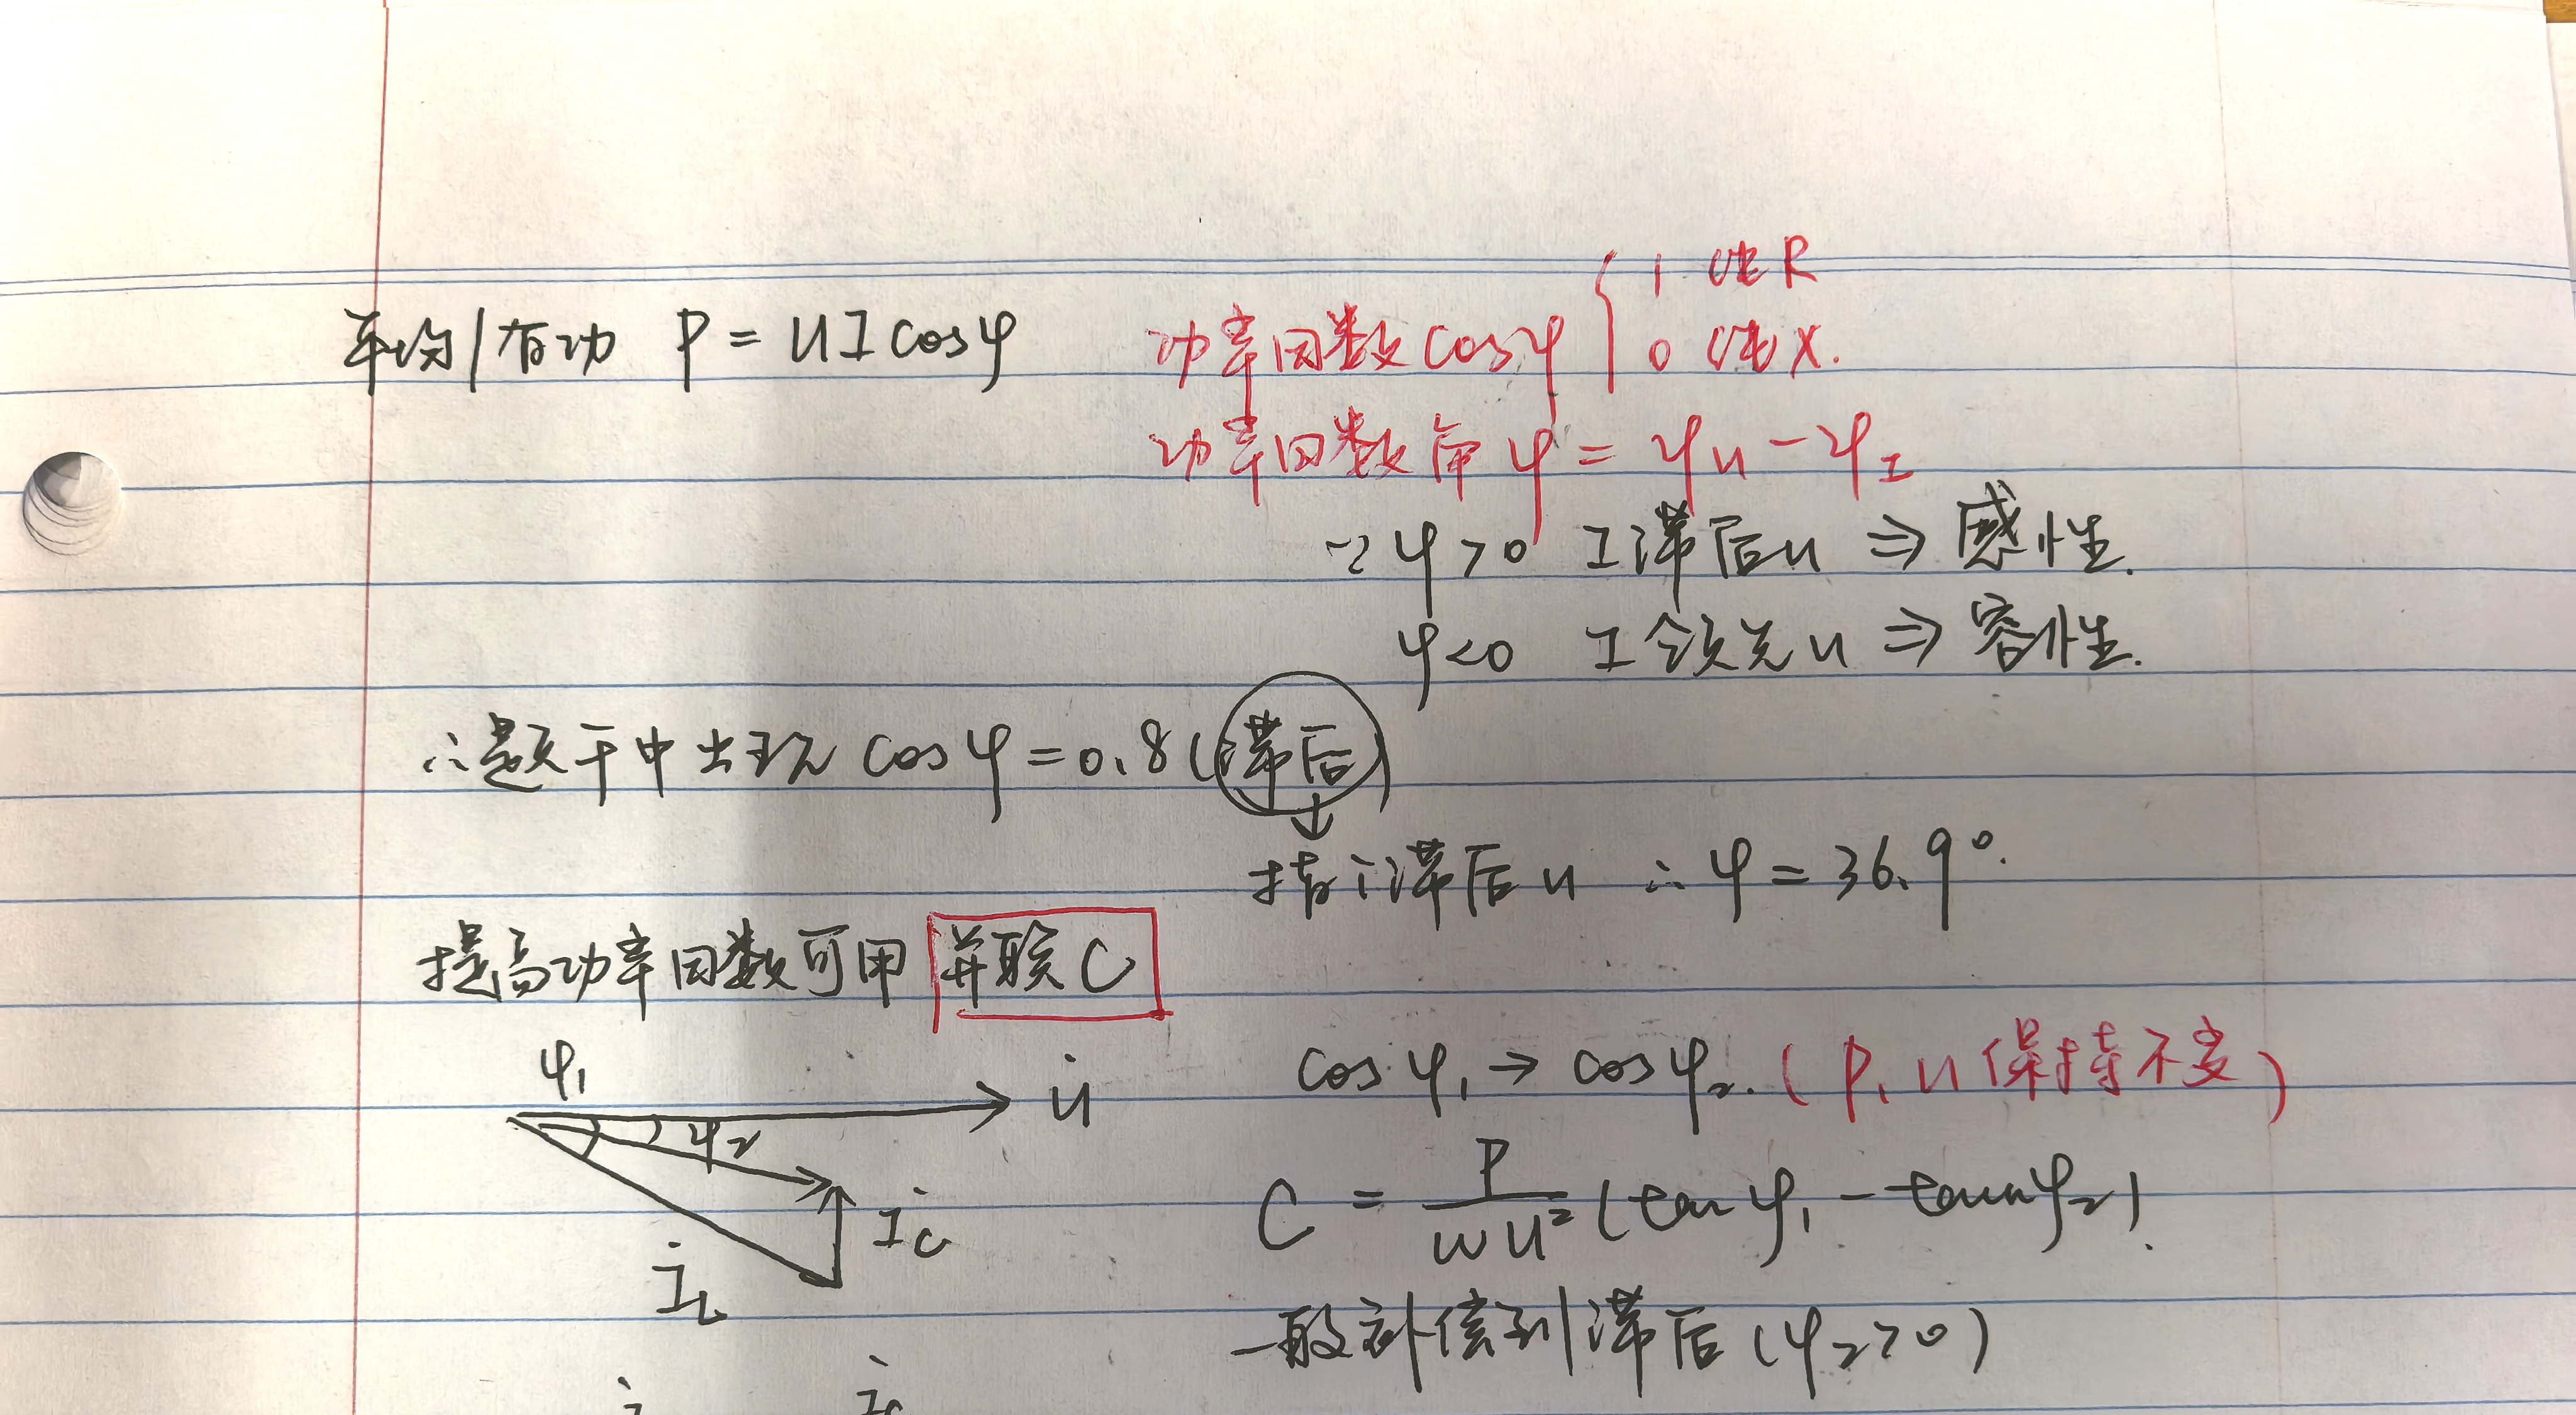 平均/有功 P = UI cosφ
功率因数 cosφ { 1 纯R
0 纯X.
功率因数角 φ = φu - φI
∵ φ>0 I滞后u ⇒ 感性.
φ<0 I领先u ⇒ 容性.
∴题干中出现 cosφ = 0.8 (滞后)
↓
指i滞后u ∴ φ = 36.9°.
提高功率因数可用 并联C
φ₁
U̇
φ₂
İc
İL
cosφ₁ → cosφ₂. (P, U 保持不变)
C = P/ωU² (tanφ₁ - tanφ₂).
一般补偿到滞后 (φ₂>0)